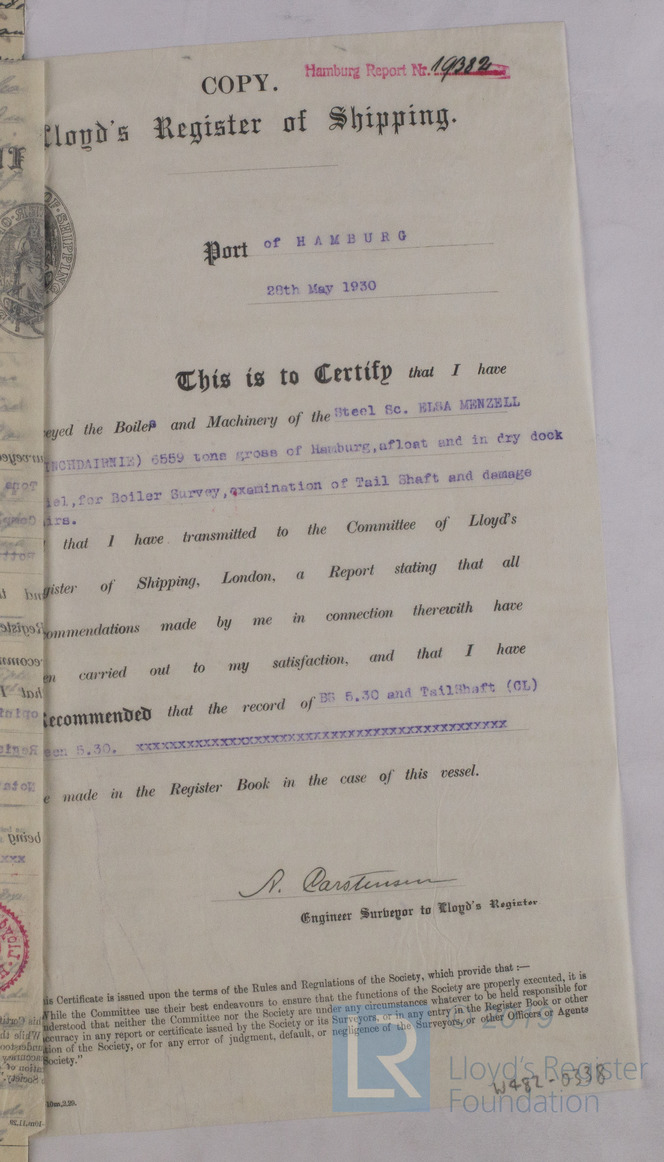 COPY.
Hamburg Report Nr. 19382
Lloyd's Register of Shipping.
Port of HAMBURG
28th May 1930
This is to Certify that I have
eyed the Boilers and Machinery of the Steel Sc. ELSA MENZELL
INCHDAIRNIE) 6559 tons gross of Hamburg, afloat and in dry dock
iel, for Boiler Survey, examination of Tail Shaft and damage
irs.
that I have transmitted to the Committee of Lloyd's
gister of Shipping, London, a Report stating that all
ommendations made by me in connection therewith have
en carried out to my satisfaction, and that I have
Recommended that the record of BS 5.30 and TailShaft (CL)
een 5.30. xxxxxxxxxxxxxxxxxxxxxxxxxxxxxxxxxxxxxxxxxxx
e made in the Register Book in the case of this vessel.
A. Carstensen
Engineer Surveyor to Lloyd's Register
is Certificate is issued upon the terms of the Rules and Regulations of the Society, which provide that :—
While the Committee use their best endeavours to ensure that the functions of the Society are properly executed, it is
nderstood that neither the Committee nor the Society are under any circumstances whatever to be held responsible for
ccuracy in any report or certificate issued by the Society or its Surveyors, or in any entry in the Register Book or other
tion of the Society, or for any error of judgment, default, or negligence of the Surveyors, or other Officers or Agents
Society."
10m,2.29.
W482-0338
© 2019
LR
Lloyd's Register
Foundation